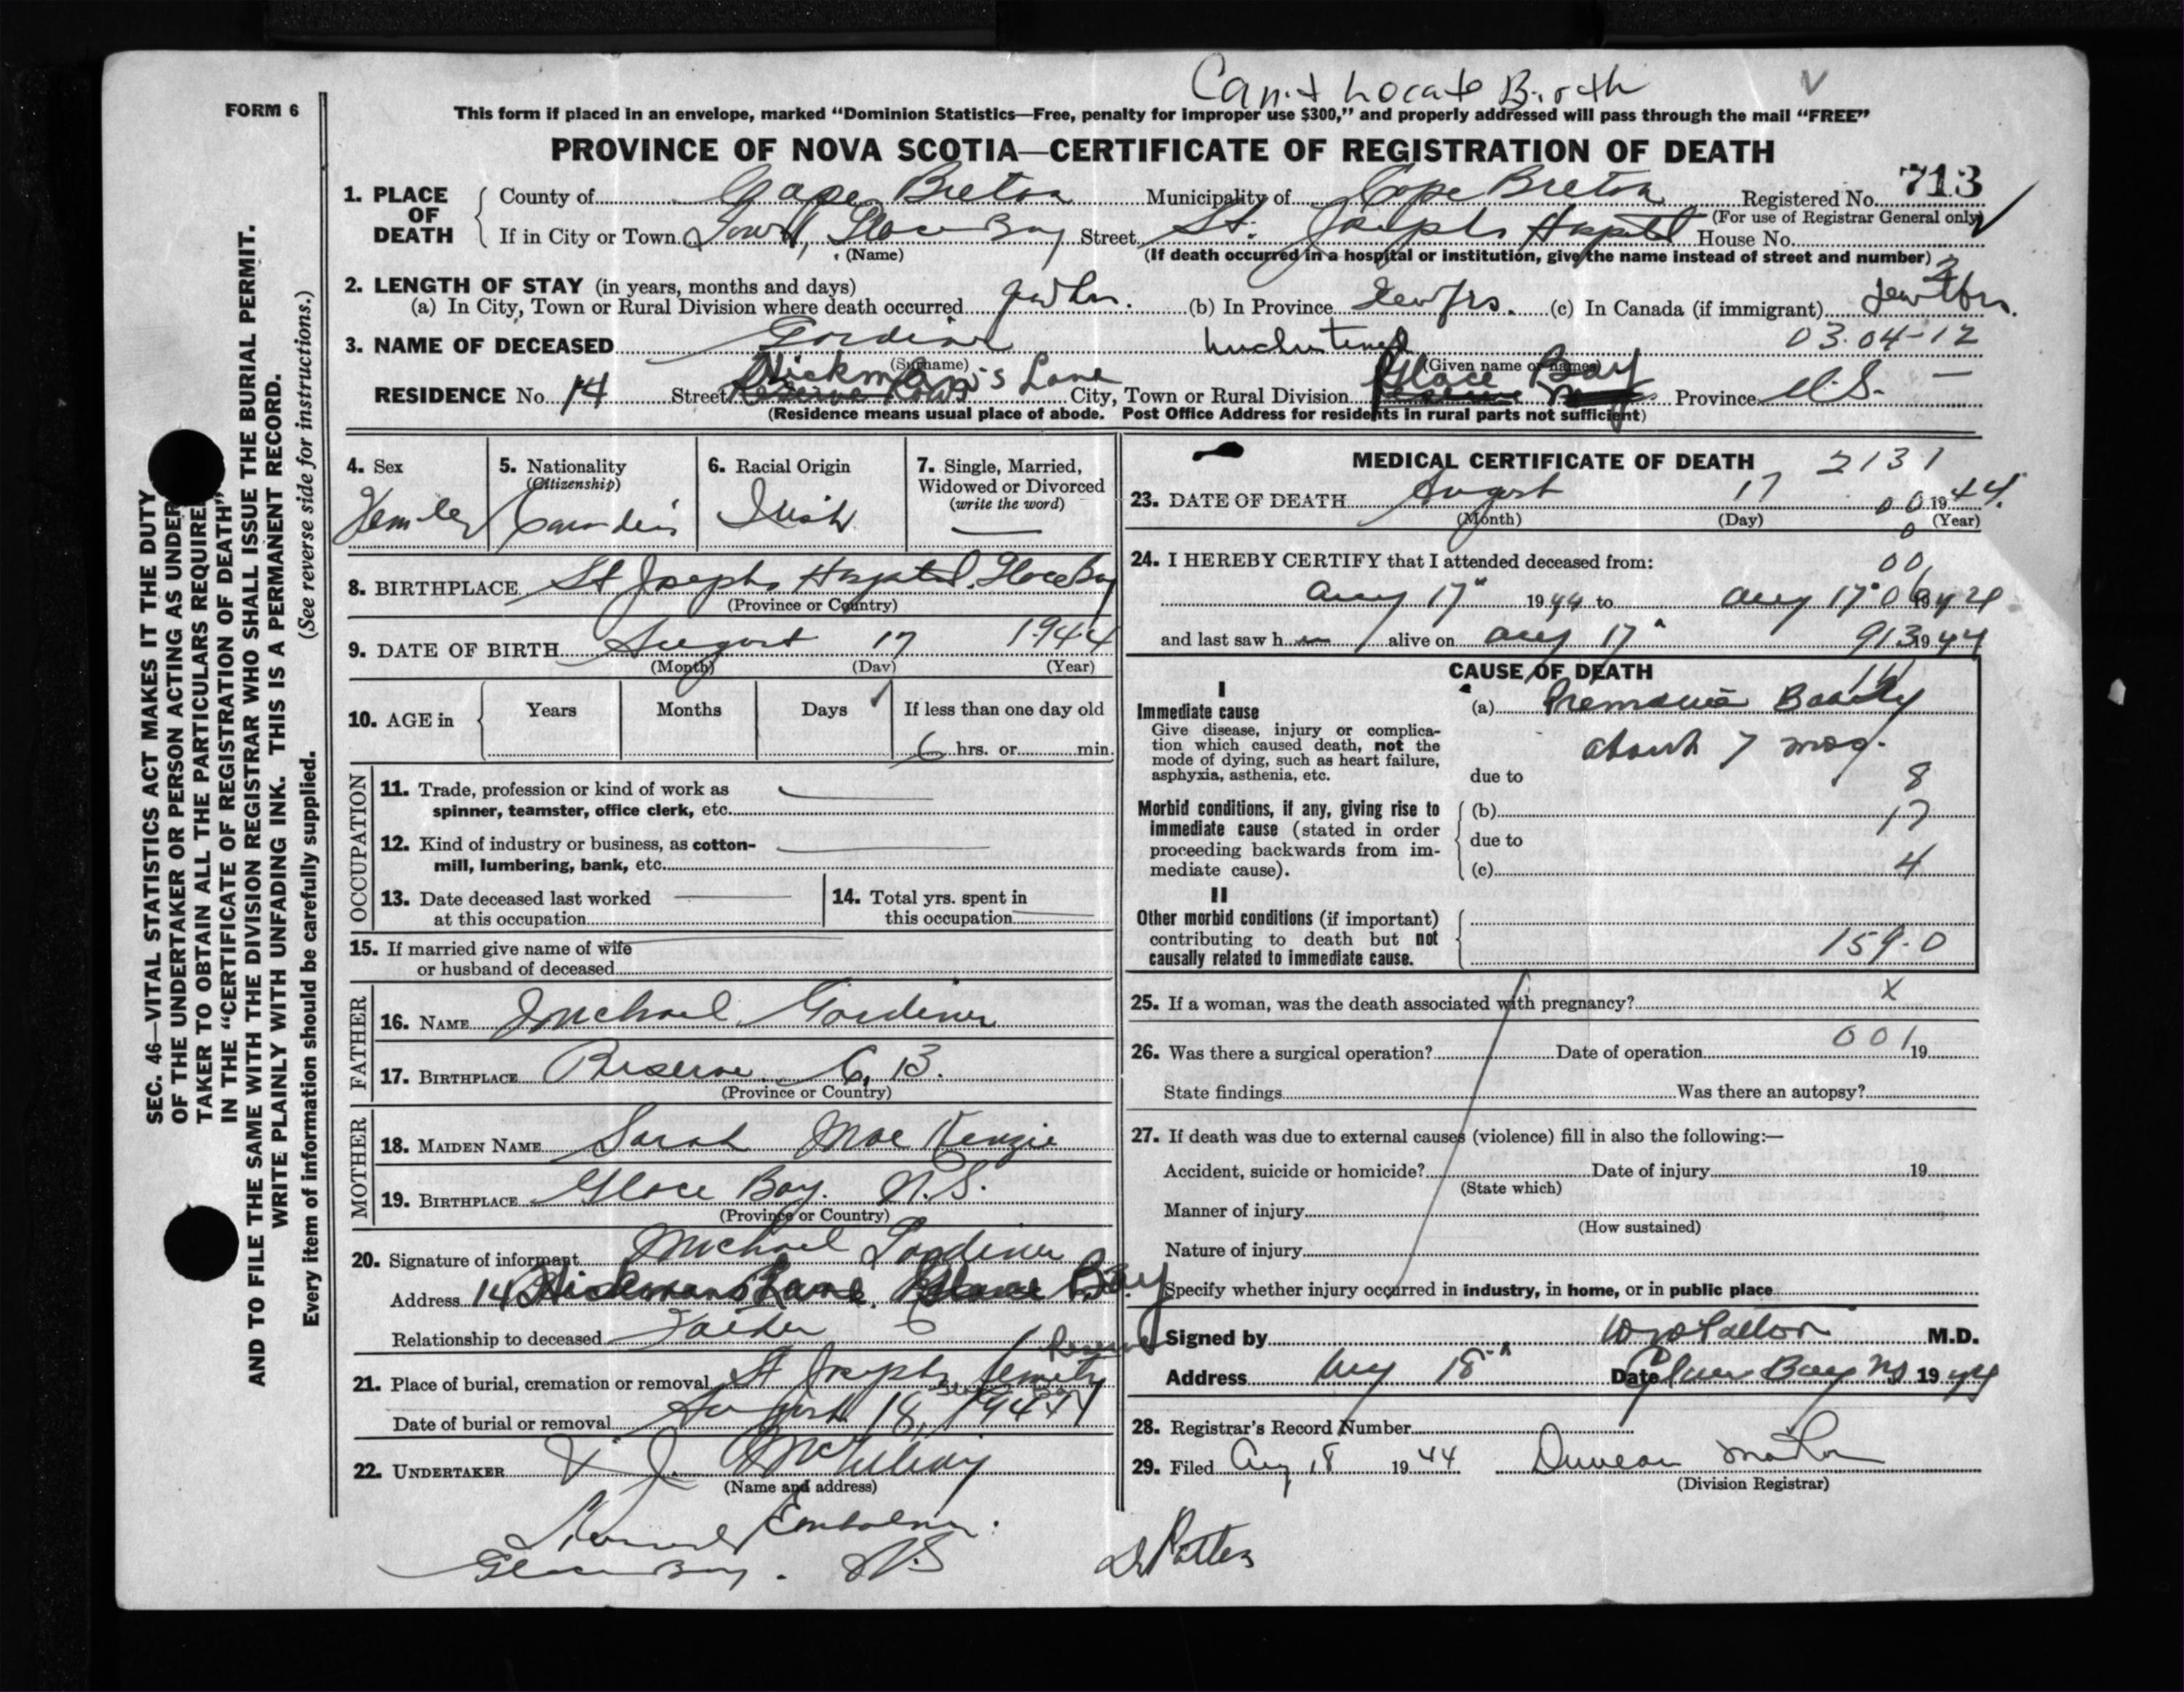 Can't Locate Birth
FORM 6
This form if placed in an envelope, marked “Dominion Statistics—Free, penalty for improper use $300,” and properly addressed will pass through the mail “FREE”
PROVINCE OF NOVA SCOTIA—CERTIFICATE OF REGISTRATION OF DEATH
1. PLACE OF DEATH
County of Cape Breton Municipality of Cape Breton Registered No. 713
(For use of Registrar General only)
If in City or Town Town, Glace Bay Street St. Josephs Hospital House No.
(Name) (If death occurred in a hospital or institution, give the name instead of street and number)
2. LENGTH OF STAY (in years, months and days)
(a) In City, Town or Rural Division where death occurred few hrs. (b) In Province few hrs. (c) In Canada (if immigrant) few hrs.
3. NAME OF DECEASED Gardiner 03.04-12
(Surname) (Given name or names)
RESIDENCE No. 14 Street Hickman's Lane City, Town or Rural Division Glace Bay Province N.S. —
(Residence means usual place of abode. Post Office Address for residents in rural parts not sufficient)
4. Sex
5. Nationality (Citizenship)
6. Racial Origin
Irish
7. Single, Married, Widowed or Divorced (write the word)
—
8. BIRTHPLACE St Josephs Hospital. Glace Bay
(Province or Country)
9. DATE OF BIRTH August 17 1944
(Month) (Day) (Year)
10. AGE in Years Months Days If less than one day old
6 hrs. or min.
OCCUPATION
11. Trade, profession or kind of work as spinner, teamster, office clerk, etc.
12. Kind of industry or business, as cotton-mill, lumbering, bank, etc.
13. Date deceased last worked at this occupation
14. Total yrs. spent in this occupation
15. If married give name of wife or husband of deceased
FATHER
16. NAME Michael Gardiner
17. BIRTHPLACE Reserve C. B.
(Province or Country)
MOTHER
18. MAIDEN NAME Sarah MacKenzie
19. BIRTHPLACE Glace Bay. N.S.
(Province or Country)
20. Signature of informant Michael Gardiner
Address 14 Hickmans Lane Glace Bay
Relationship to deceased Father
21. Place of burial, cremation or removal St Josephs Cemetry Reserve
Date of burial or removal August 18, 1944
22. UNDERTAKER V. J. McGillivray
(Name and address)
Embalmer.
Glace Bay. N.S
MEDICAL CERTIFICATE OF DEATH 2131
23. DATE OF DEATH August 17 1944.
(Month) (Day) (Year)
24. I HEREBY CERTIFY that I attended deceased from:
Aug 17" 1944 to Aug 17" 1944
and last saw h alive on Aug 17" 1944
CAUSE OF DEATH
I
Immediate cause
Give disease, injury or complication which caused death, not the mode of dying, such as heart failure, asphyxia, asthenia, etc.
(a) Premature Baby
about 7 mos.
due to
8
Morbid conditions, if any, giving rise to immediate cause (stated in order proceeding backwards from immediate cause).
(b) 17
due to
(c) 4
II
Other morbid conditions (if important) contributing to death but not causally related to immediate cause.
159.0
25. If a woman, was the death associated with pregnancy? X
26. Was there a surgical operation? Date of operation 001 19
State findings Was there an autopsy?
27. If death was due to external causes (violence) fill in also the following:—
Accident, suicide or homicide? Date of injury 19
(State which)
Manner of injury
(How sustained)
Nature of injury
Specify whether injury occurred in industry, in home, or in public place
Signed by Patton M.D.
Address Aug 18" Date Glace Bay NS 1944
28. Registrar's Record Number
29. Filed Aug 18 1944 Duncan
(Division Registrar)
SEC. 46—VITAL STATISTICS ACT MAKES IT THE DUTY
OF THE UNDERTAKER OR PERSON ACTING AS UNDER
TAKER TO OBTAIN ALL THE PARTICULARS REQUIRE
IN THE “CERTIFICATE OF REGISTRATION OF DEATH”
AND TO FILE THE SAME WITH THE DIVISION REGISTRAR WHO SHALL ISSUE THE BURIAL PERMIT.
WRITE PLAINLY WITH UNFADING INK. THIS IS A PERMANENT RECORD.
Every item of information should be carefully supplied. (See reverse side for instructions.)